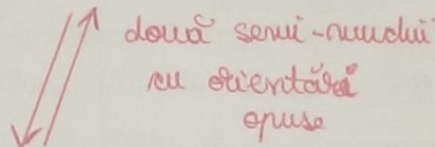 două semi-muchii
cu orientări
opuse